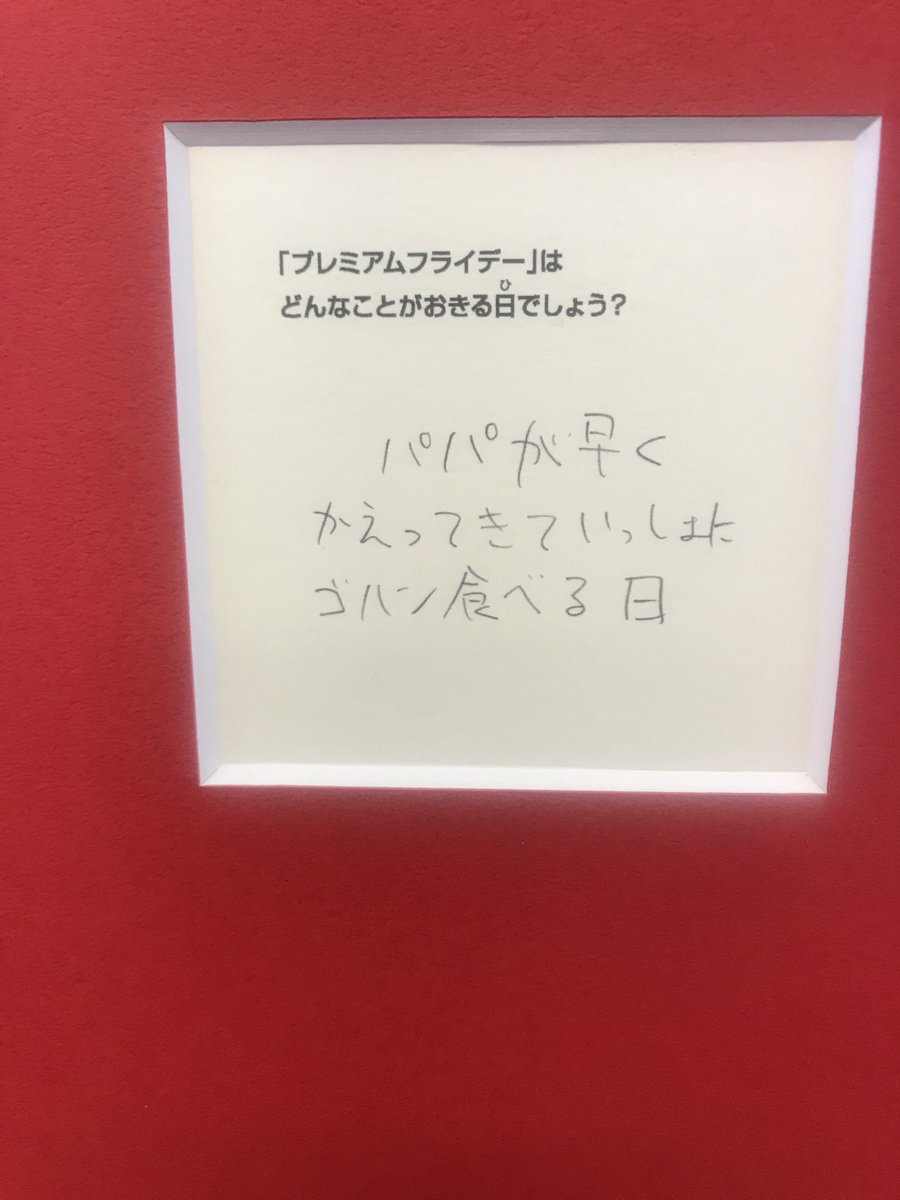 「プレミアムフライデー」は
どんなことがおきる日でしょう?
ひ
パパが早く
かえってきていっしょに
ゴハン食べる日